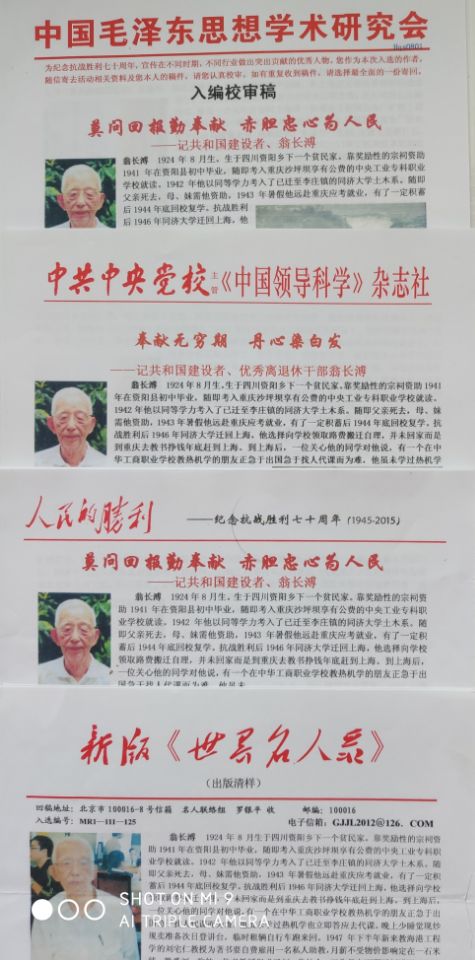 中国毛泽东思想学术研究会
Hqs0801
为纪念抗战胜利七十周年，宣传在不同时期，不同行业做出突出贡献的优秀人物，您作为本次入选的作者，
随信寄去活动相关资料及您本人的稿件，请您认真校审，如有重复收到稿件，请选择最全面的一份寄回。
入编校审稿
莫问回报勤奉献 赤胆忠心为人民
——记共和国建设者、翁长溥
翁长溥 1924 年 8 月生，生于四川资阳乡下一个贫民家，靠奖励性的宗祠资助
1941 年在资阳县初中毕业，随即考入重庆沙坪坝享有公费的中央工业专科职业
学校就读。1942 年他以同等学力考入了已迁至李庄镇的同济大学土木系。随即
父亲死去，母、妹需他资助，1943 年暑假他远赴重庆应考就业，有了一定积蓄
后 1944 年底回校复学。抗战胜利
后 1946 年同济大学迁回上海，他
中共中央党校主管《中国领导科学》杂志社
奉献无穷期 丹心染白发
——记共和国建设者、优秀离退休干部翁长溥
翁长溥 1924 年 8 月生，生于四川资阳乡下一个贫民家，靠奖励性的宗祠资助 1941
年在资阳县初中毕业，随即考入重庆沙坪坝享有公费的中央工业专科职业学校就读。
1942 年他以同等学力考入了已迁至李庄镇的同济大学土木系。随即父亲死去，母、妹
需他资助，1943 年暑假他远赴重庆应考就业，有了一定积蓄后 1944 年底回校复学。抗
战胜利后 1946 年同济大学迁回上海，他选择向学校领取路费搬迁自理，并未回家而是
到重庆去教书挣钱年底赶到上海。到上海后，一位关心他的同学对他说，有一个在中
华工商职业学校教热机学的朋友正急于出国急于找人代课而为难。他虽未学过热机学
人民的胜利
——纪念抗战胜利七十周年 (1945-2015)
莫问回报勤奉献 赤胆忠心为人民
——记共和国建设者、翁长溥
翁长溥 1924 年 8 月生，生于四川资阳乡下一个贫民家，靠奖励性的宗祠资
助 1941 年在资阳县初中毕业，随即考入重庆沙坪坝享有公费的中央工业专科职
业学校就读。1942 年他以同等学力考入了已迁至李庄镇的同济大学土木系。随即
父亲死去，母、妹需他资助，1943 年暑假他远赴重庆应考就业，有了一定积蓄后
1944 年底回校复学。抗战胜利后 1946 年同济大学迁回上海，他选择向学校
领取路费搬迁自理，并未回家而是到重庆去教书挣钱年底赶到上海。到上海后，
一位关心他的同学对他说，有一个在中华工商职业学校教热机学的朋友正急于出
国急于找人代课而为难。他虽未
新版《世界名人录》
（出版清样）
回稿地址：北京市 100016-8 号信箱 名人联络组 罗银平 收 邮编：100016
入选编号：MR1—111—125 电子信箱：GJJL2012@126．COM
翁长溥 1924 年 8 月生，生于四川资阳乡下一个贫民家，靠奖励性的宗祠资
助 1941 年在资阳县初中毕业，随即考入重庆沙坪坝享有公费的中央工业专科职
业学校就读。1942 年他以同等学力考入了已迁至李庄镇的同济大学土木系。随
即父亲死去，母、妹需他资助，1943 年暑假他远赴重庆应考就业，有了一定积
蓄后 1944 年底回校复学。抗战胜利后 1946 年同济大学迁回上海，他选择向学校
领取路费搬迁自理，并未回家而是到重庆去教书挣钱年底赶到上海。到上海后，
一位关心他的同学对他说，有一个在中华工商职业学校教热机学的朋友正急于出
国急于找人代课而为难。他虽未学过热机学也立即答应去代课。晚上少睡觉现炒
现卖准备次日登讲台，临时租辆自行车跑来回。1947 年下半年新来教海港工程
学的刘宅仁教授为著书要自费雇用一名私人助教，月薪不受物价影响定在一石米
SHOT ON MI 9
AI TRIPLE CAMERA